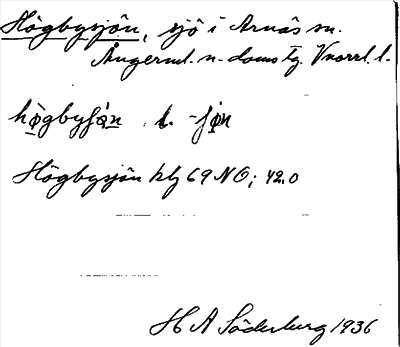 Högbysjön, sjö i Arnäs sn.
Ångerml. n. doms tg. Vnorrl. l.
högbyʃø̀n l. -ʃøn
Högbysjön kbl 69 NO; 42.0
H A Söderburg 1936